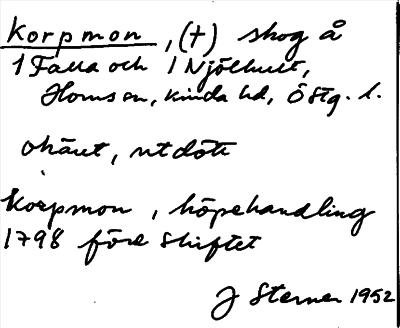 Korpmon, (+) skog å
1 Falla och 1 Njölhult,
Horns sn, Kinda hd, Östg. l.
ohänt, utdött
Korpmon, köpehandling
1798 före skiftet
J Sterner 1952